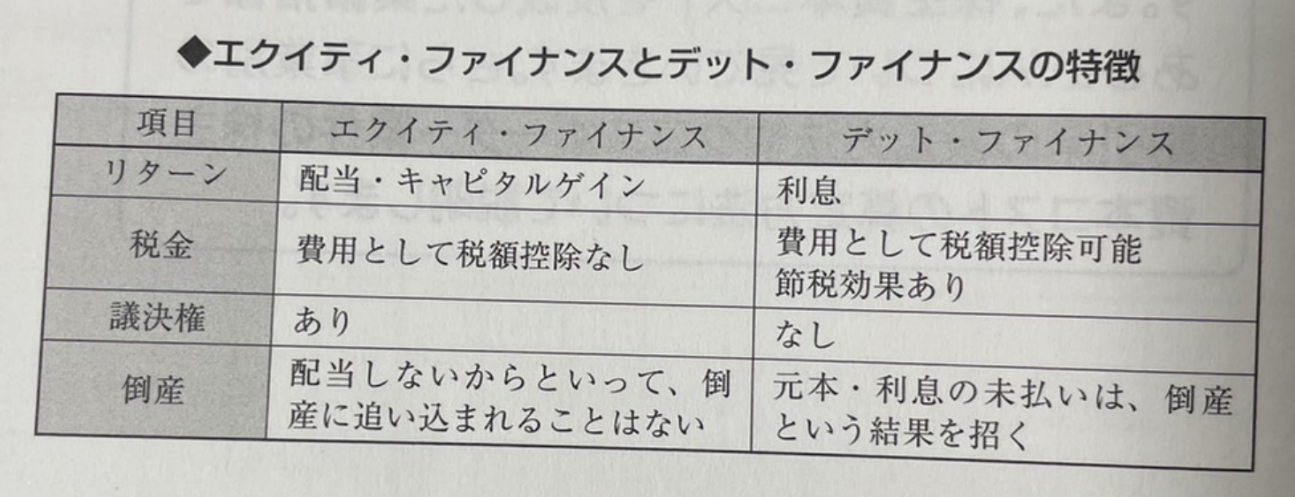 ◆エクイティ・ファイナンスとデット・ファイナンスの特徴
項目 エクイティ・ファイナンス デット・ファイナンス
リターン 配当・キャピタルゲイン 利息
税金 費用として税額控除なし 費用として税額控除可能
節税効果あり
議決権 あり なし
倒産 配当しないからといって、倒
産に追い込まれることはない
元本・利息の未払いは、倒産
という結果を招く